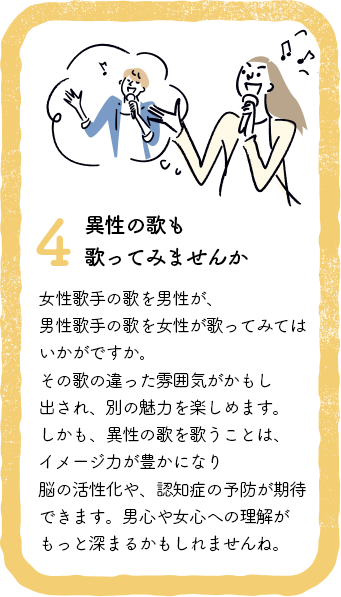 4
異性の歌も
歌ってみませんか
女性歌手の歌を男性が、
男性歌手の歌を女性が歌ってみては
いかがですか。
その歌の違った雰囲気がかもし
出され、別の魅力を楽しめます。
しかも、異性の歌を歌うことは、
イメージ力が豊かになり
脳の活性化や、認知症の予防が期待
できます。男心や女心への理解が
もっと深まるかもしれませんね。